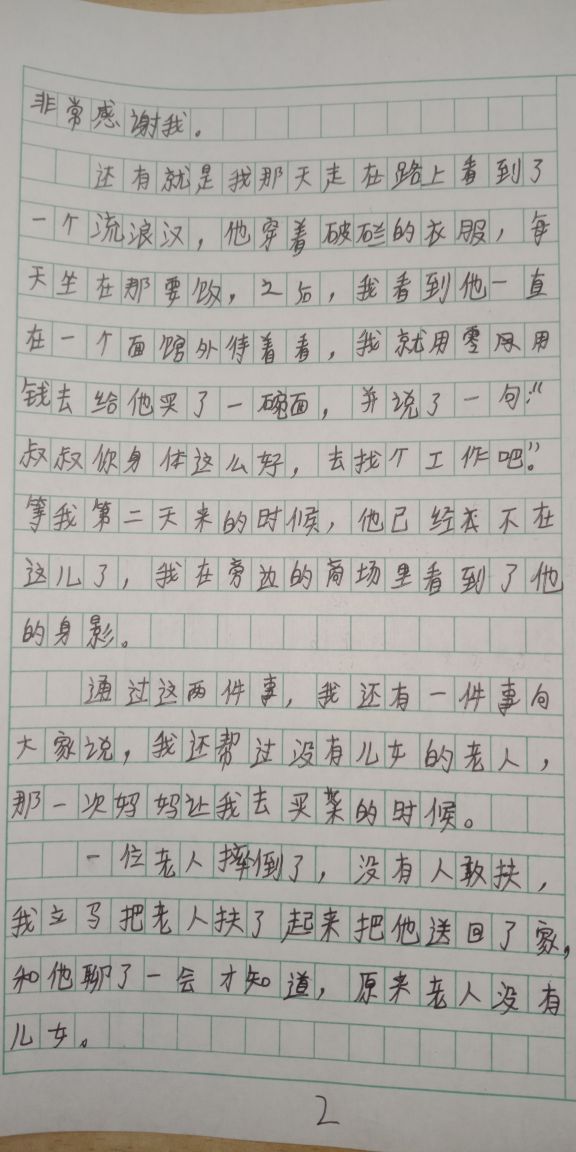 非常感谢我。
还有就是我那天走在路上看到了
一个流浪汉，他穿着破烂的衣服，每
天坐在那要饭，之后，我看到他一直
在一个面馆外待着看，我就用零用
钱去给他买了一碗面，并说了一句：“
叔叔你身体这么好，去找个工作吧”。
等我第二天来的时候，他已经不在
这儿了，我在旁边的商场里看到了他
的身影。
通过这两件事，我还有一件事向
大家说，我还帮过没有儿女的老人，
那一次妈妈让我去买菜的时候。
一位老人摔倒了，没有人敢扶，
我立马把老人扶了起来把他送回了家，
和他聊了一会才知道，原来老人没有
儿女。
2